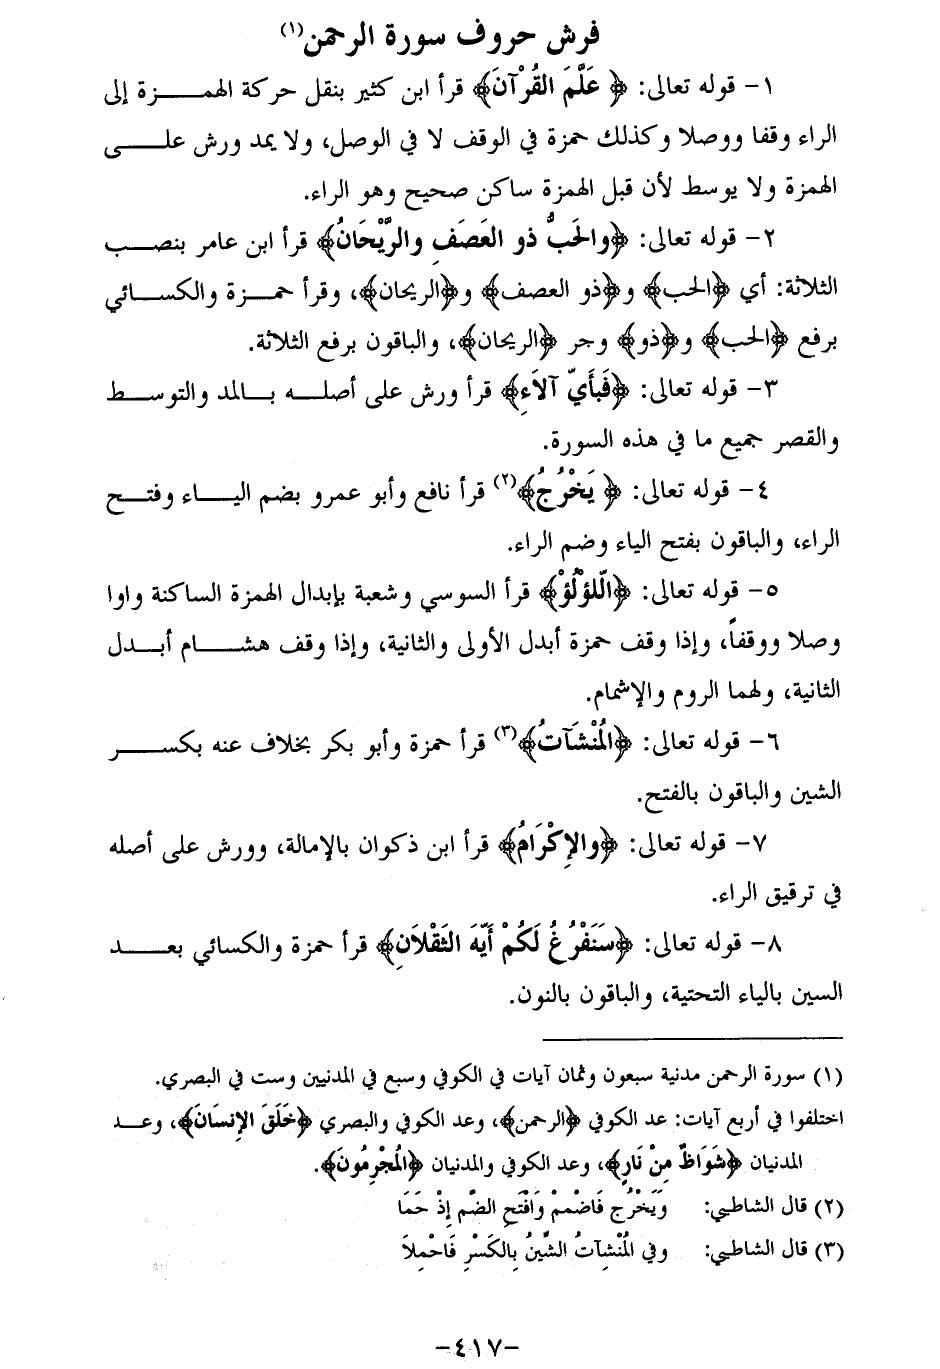 فرش حروف سورة الرحمن(١)
١- قوله تعالى: ﴿ عَلَّمَ القُرْآنَ﴾ قرأ ابن كثير بنقل حركة الهمـــزة إلى
الراء وقفا ووصلا وكذلك حمزة في الوقف لا في الوصل، ولا يمد ورش علـــى
الهمزة ولا يوسط لأن قبل الهمزة ساكن صحيح وهو الراء.
٢- قوله تعالى: ﴿والحَبُّ ذو العَصَفِ والرَّيْحَانُ﴾ قرأ ابن عامر بنصـــب
الثلاثة: أي ﴿الحب﴾ و﴿ذو العصف﴾ و﴿الريحان﴾، وقرأ حمـــزة والكســـائي
برفع ﴿الحب﴾ و﴿ذو﴾ وجر ﴿الريحان﴾، والباقون برفع الثلاثة.
٣- قوله تعالى: ﴿فَبَأَيِّ آلاَءِ﴾ قرأ ورش على أصلـــه بـــالمد والتوســـط
والقصر جميع ما في هذه السورة.
٤- قوله تعالى: ﴿ يَخْرُجُ﴾(٢) قرأ نافع وأبو عمرو بضم اليـــاء وفتـــح
الراء، والباقون بفتح الياء وضم الراء.
٥- قوله تعالى: ﴿الّلؤْلُؤْ﴾ قرأ السوسي وشعبة بإبدال الهمزة الساكنة واوا
وصلا ووقفاً، وإذا وقف حمزة أبدل الأولى والثانية، وإذا وقف هشـــام أبـــدل
الثانية، ولهما الروم والإشمام.
٦- قوله تعالى: ﴿الُمنْشَآتُ﴾(٣) قرأ حمزة وأبو بكر بخلاف عنه بكســـر
الشين والباقون بالفتح.
٧- قوله تعالى: ﴿والإِكْرَامُ﴾ قرأ ابن ذكوان بالإمالة، وورش على أصله
في ترقيق الراء.
٨- قوله تعالى: ﴿سَنَفْرُغُ لَكُمْ أَيّهَ الثَقْلاَنِ﴾ قرأ حمزة والكسائي بعـــد
السين بالياء التحتية، والباقون بالنون.
(١) سورة الرحمن مدنية سبعون وثمان آيات في الكوفي وسبع في المدنيين وست في البصري.
اختلفوا في أربع آيات: عد الكوفي ﴿الرحمن﴾، وعد الكوفي والبصري ﴿خَلَقَ الإِنسَانَ﴾، وعـــد
المدنيان ﴿شَوَاظٌ مِنْ نَارٍ﴾، وعد الكوفي والمدنيان ﴿الُمجْرِمُونَ﴾.
(٢) قال الشاطبي: وَيَخْرُج فَاضْممْ وَافْتَحِ الضّم إِذْ حَمَا
(٣) قال الشاطبي: وفي الُمنْشِآتُ الشِّينُ بِالكَسْرِ فَاحْمِلاَ
-٤١٧-